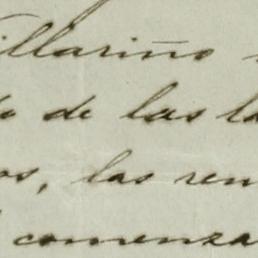 illariño
de las la
os, las ren
comenza